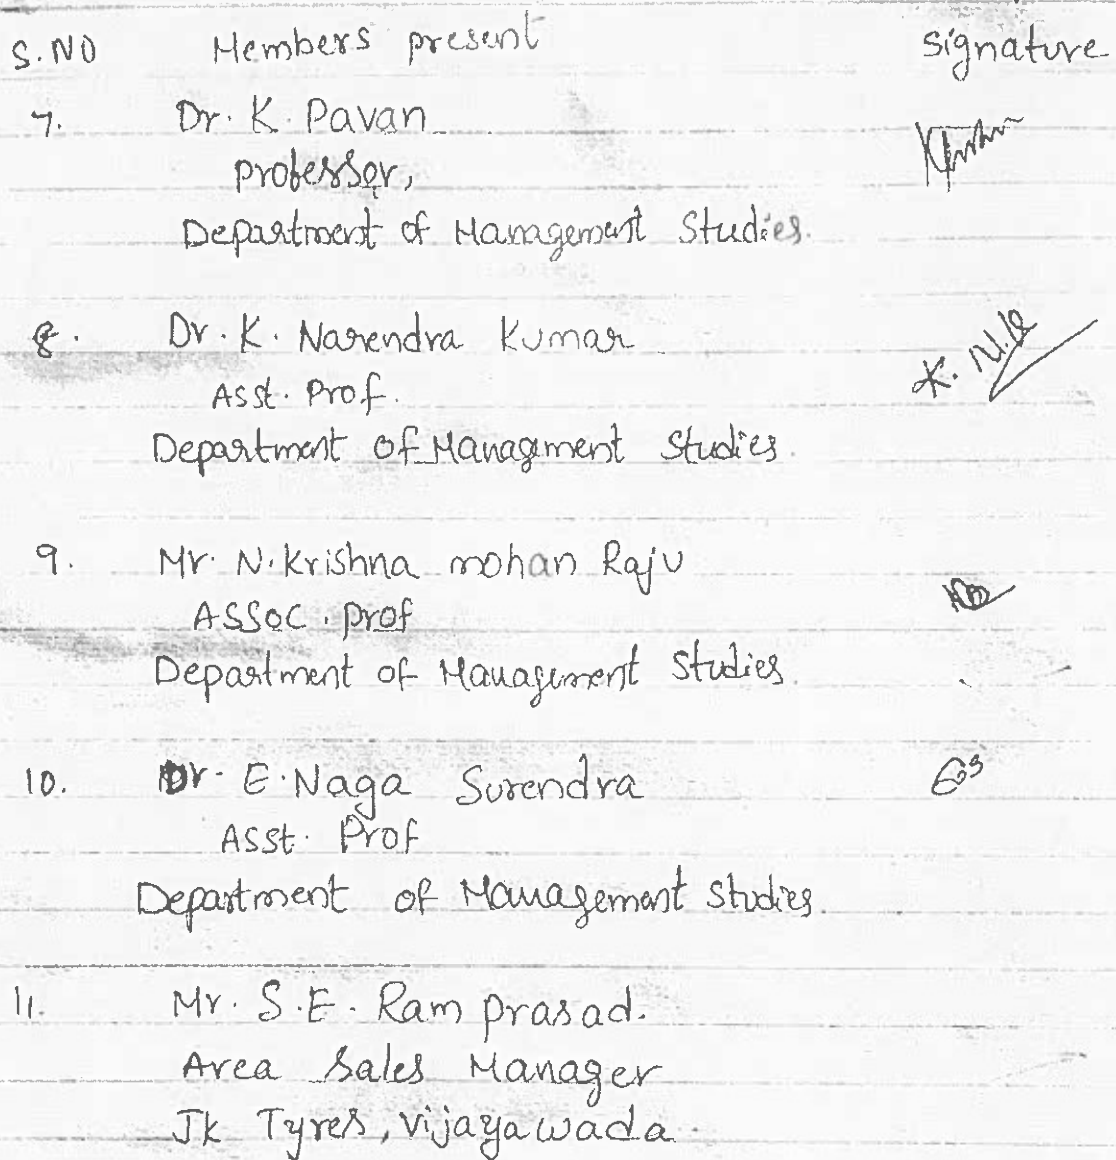 S.NO Members present Signature
7. Dr. K. Pavan
Professor,
Department of Management Studies.
8. Dr. K. Narendra Kumar
Asst. Prof.
Department of Management Studies.
9. Mr. N. Krishna mohan Raju
Assoc. prof
Department of Management Studies.
10. Dr. E. Naga Surendra
Asst. Prof
Department of Management Studies.
11. Mr. S.E. Ram prasad.
Area Sales Manager
Jk Tyres, Vijayawada.